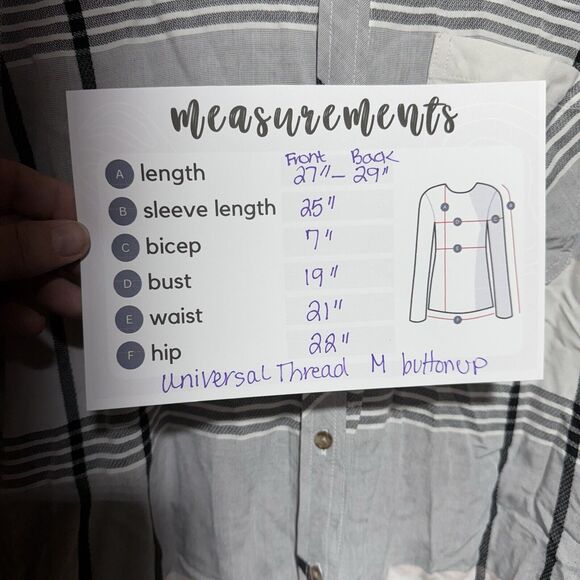 measurements
Front Back
A length 27"- 29"
B sleeve length 25"
C bicep 7"
D bust 19"
E waist 21"
F hip 22"
Universal Thread M buttonup
A
D
E
F